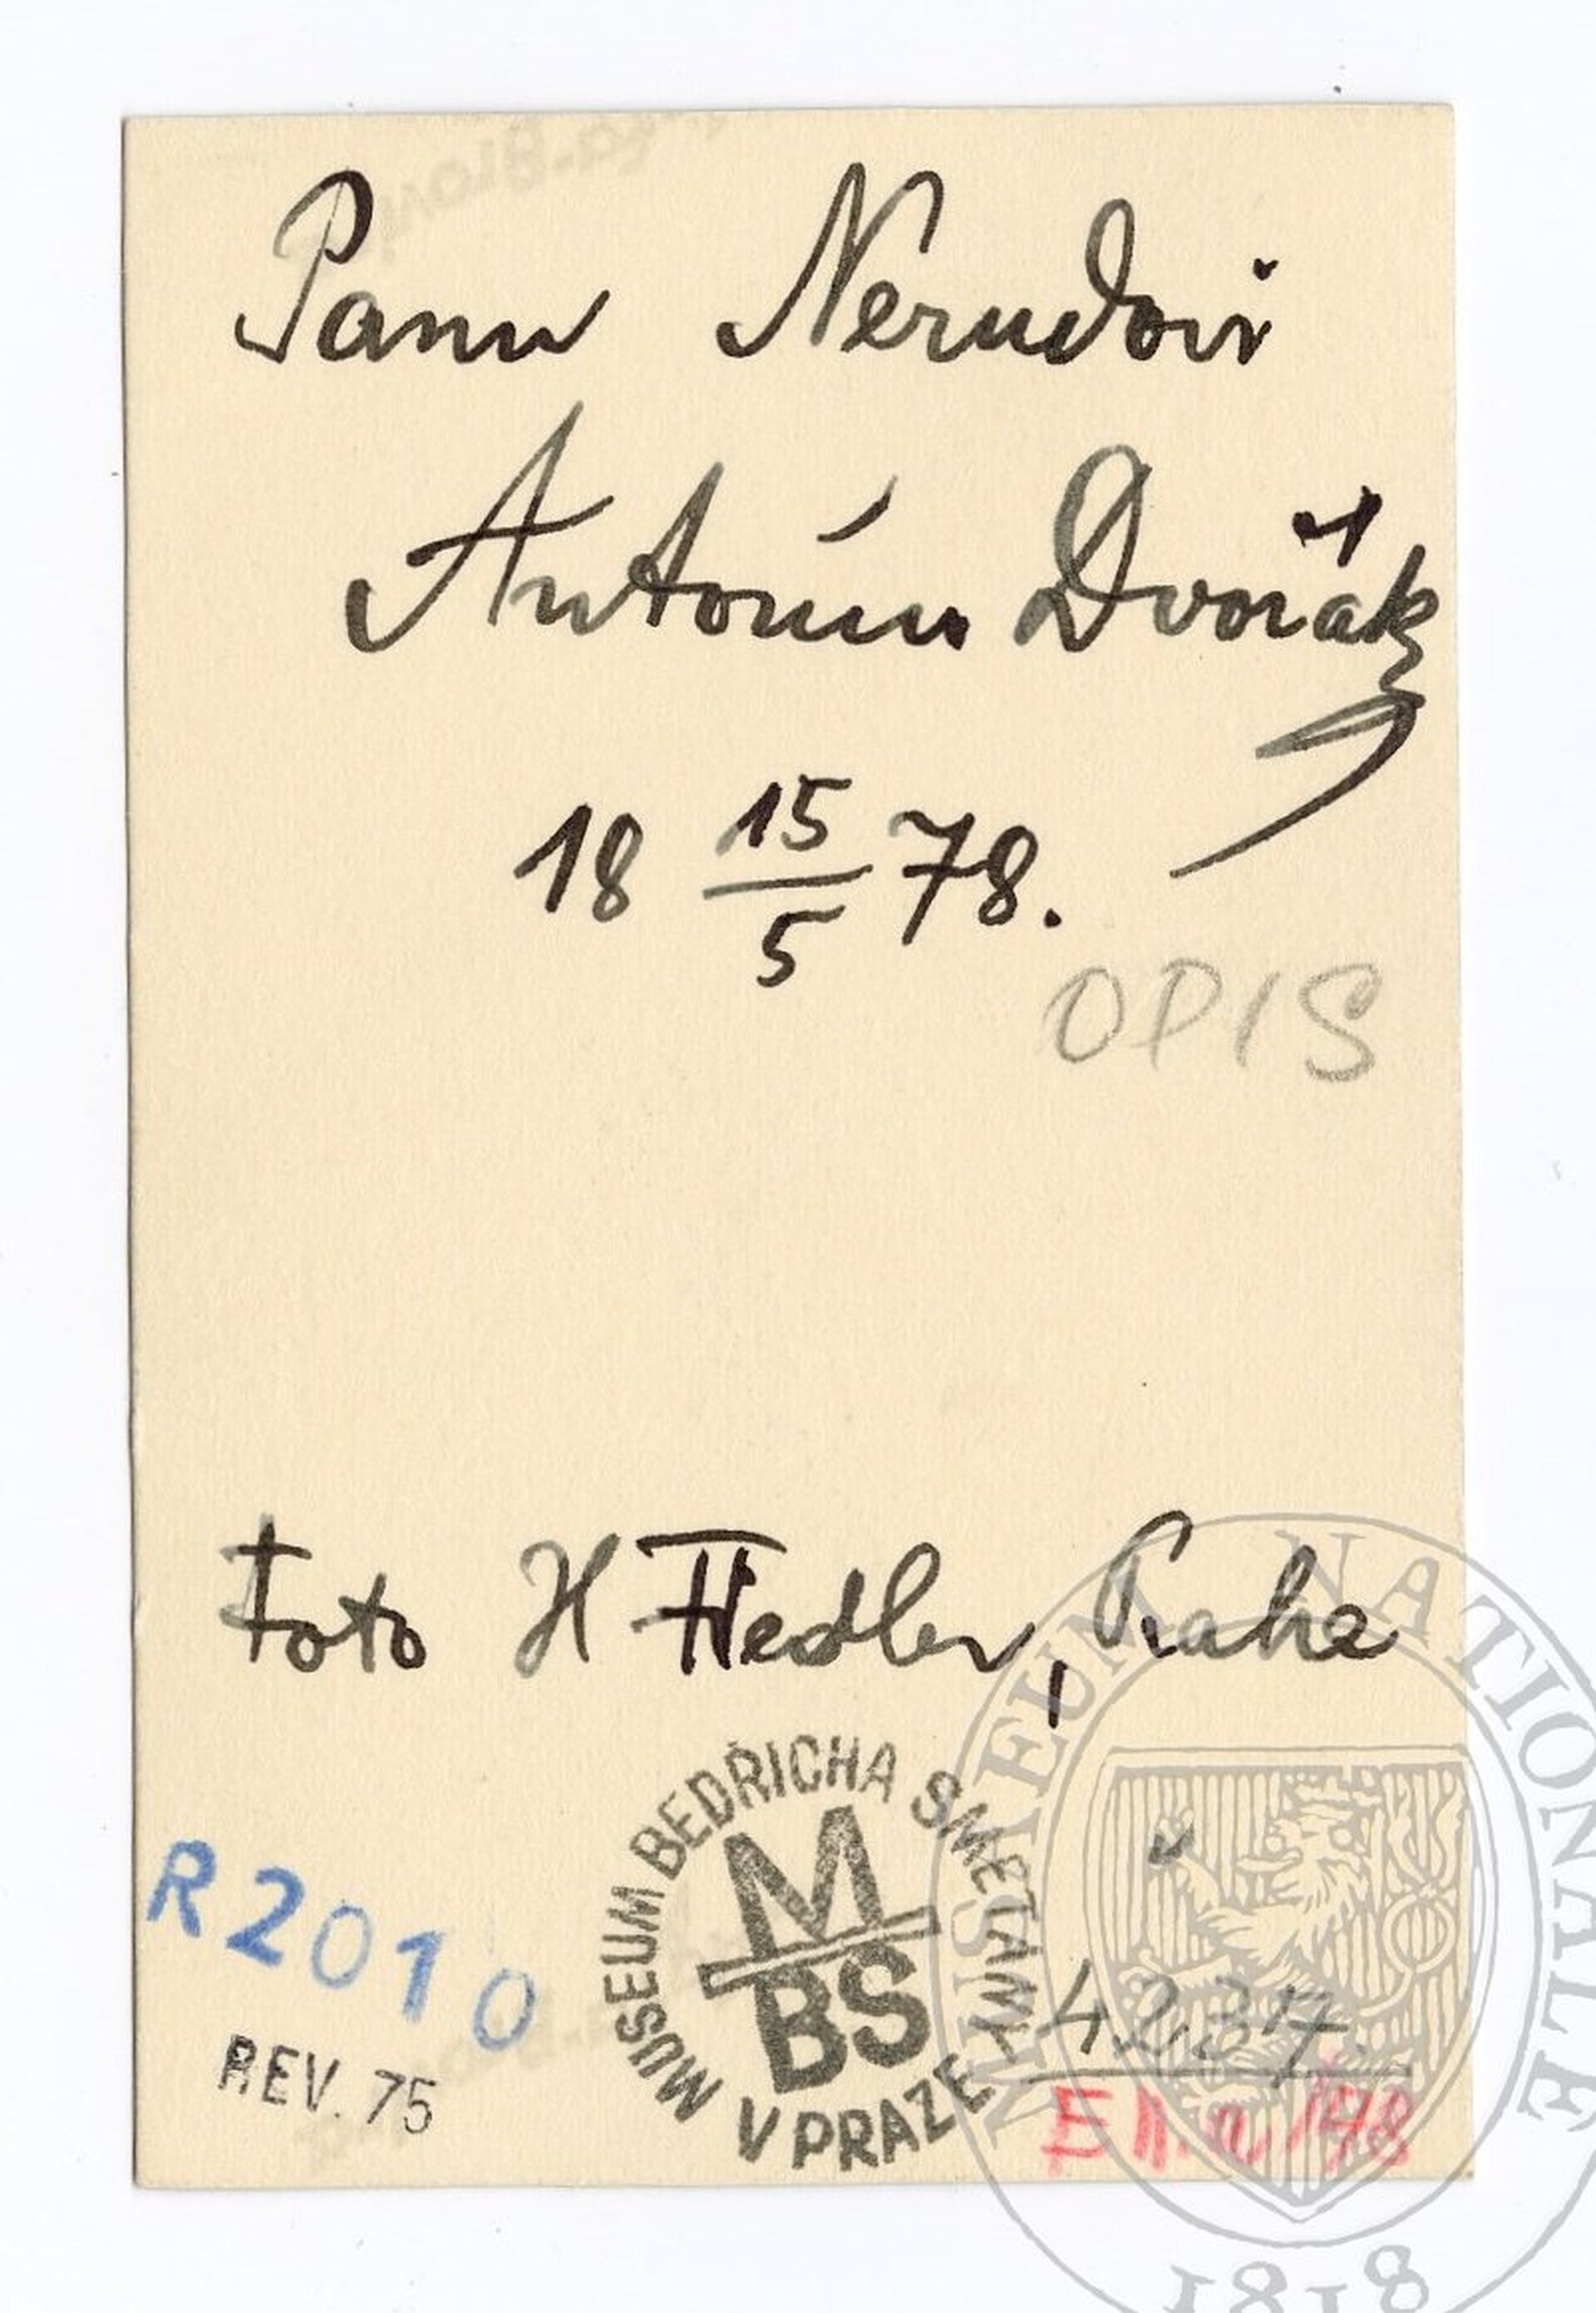 Panu Nerudovi
Antonín Dvořák
18 15/5 78.
OPIS
Foto H Fiedler, Praha
R 2010
REV. 75
MUSEUM BEDŘICHA SMETANY V PRAZE
MBS
4237
MUSEUM NATIONALE
1818